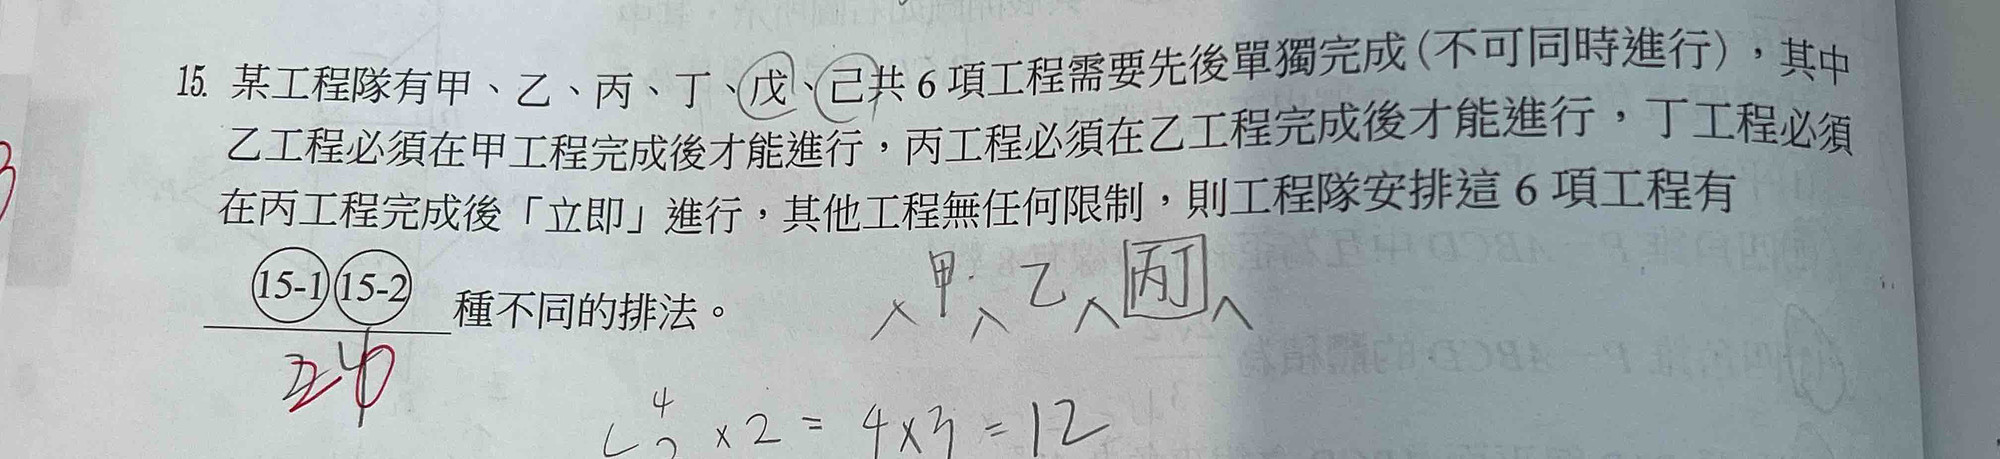 15. 某工程隊有甲、乙、丙、丁、戊、己共 6 項工程需要先後單獨完成(不可同時進行),其中
乙工程必須在甲工程完成後才能進行,丙工程必須在乙工程完成後才能進行,丁工程必須
在丙工程完成後「立即」進行,其他工程無任何限制,則工程隊安排這 6 項工程有
15-1 15-2 種不同的排法。
甲 乙 丙丁
20
C 4 2 × 2 = 4 × 3 = 12